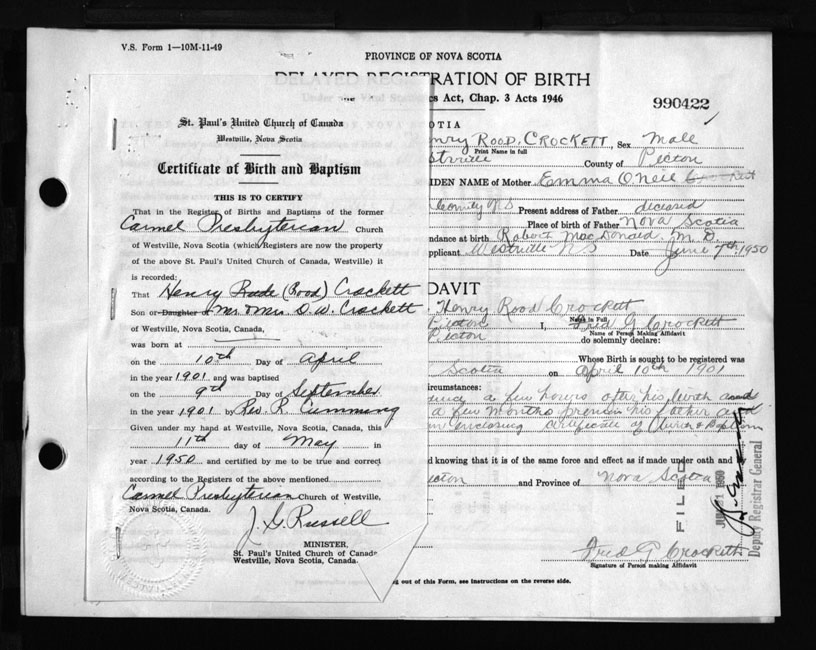 V.S. Form 1—10M-11-49
PROVINCE OF NOVA SCOTIA
DELAYED REGISTRATION OF BIRTH
cs Act, Chap. 3 Acts 1946
990422
St. Paul's United Church of Canada
Westville, Nova Scotia
Certificate of Birth and Baptism
THIS IS TO CERTIFY
That in the Register of Births and Baptisms of the former
Carmel Presbyterian Church
of Westville, Nova Scotia (which Registers are now the property
of the above St. Paul's United Church of Canada, Westville)
it is recorded:
That Henry Rude (Rood) Crockett
Son or Daughter of Mr. & Mrs. D. W. Crockett
of Westville, Nova Scotia, Canada,
was born at
on the 10th Day of April
in the year 1901 and was baptised
on the 9th Day of September
in the year 1901 by Rev. R. Cumming
Given under my hand at Westville, Nova Scotia, this
11th day of May in
year 1950 and certified by me to be true and correct
according to the Registers of the above mentioned
Carmel Presbyterian Church of Westville,
Nova Scotia, Canada.
J. G. Russell
MINISTER,
St. Paul's United Church of Canada
Westville, Nova Scotia, Canada.
OTIA
nry Rood. Crockett, Sex Male
Print Name in full
stville County of Pictou
IDEN NAME of Mother Emma O'Neil
Present address of Father deceased
Place of birth of Father Nova Scotia
ndance at birth Robert MacDonald M.D.
pplicant Westville NS Date June 7th, 1950
DAVIT
Henry Rood Crockett
Name in Full
Pictou I, Fred G Crockett
Name of Person Making Affidavit
Pictou do solemnly declare:
Whose Birth is sought to be registered was
Scotia on April 10th 1901
ircumstances:
a few hours after his birth and
a few months previous his father and
enclosing certificate of Church & Baptism
d knowing that it is of the same force and effect as if made under oath and
ictou and Province of Nova Scotia
FILED
1950
Deputy Registrar General
Fred G Crockett
Signature of Person making Affidavit
ng out of this Form, see instructions on the reverse side.